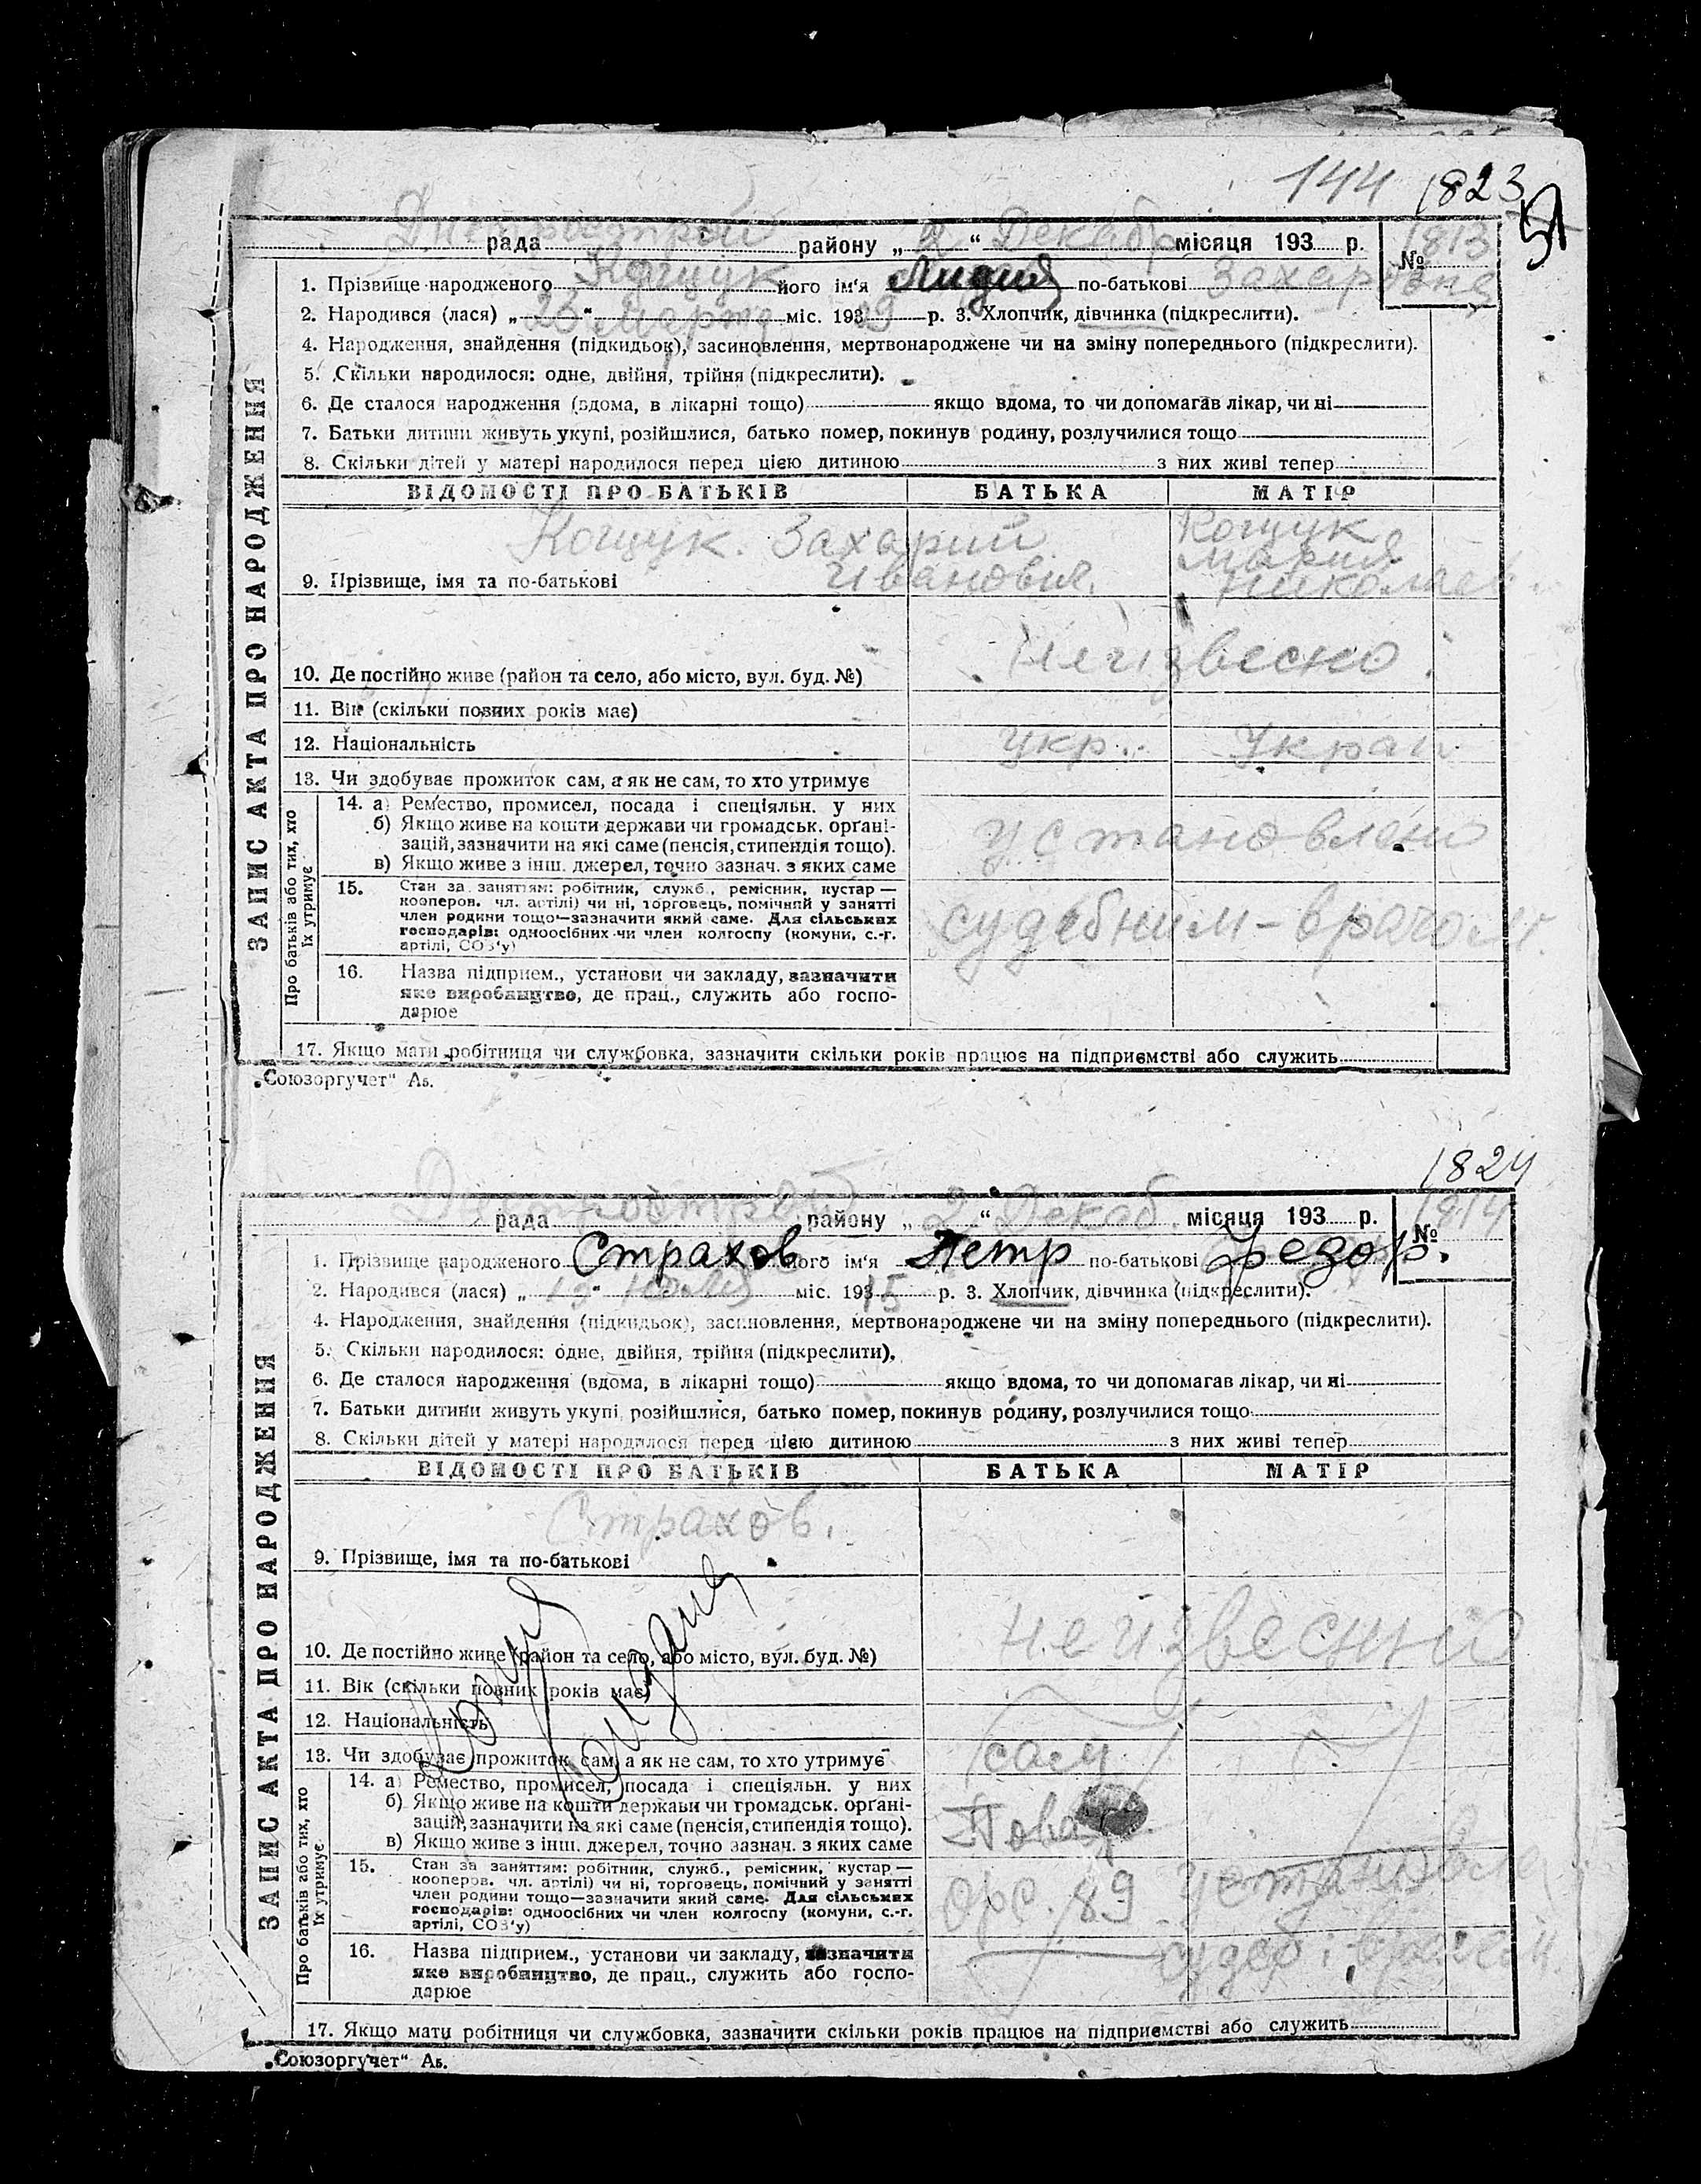 144 1823
51
Днепрострой
рада району „ 2 “ Декабр місяця 193 р. № 1813
1. Прізвище народженого Кощук його ім'я Лидия по-батькові Захаровна
2. Народився (лася) „ 23 “ Марта міс. 193 09 р. 3. Хлопчик, дівчинка (підкреслити).
4. Народження, знайдення (підкидьок), засиновлення, мертвонароджене чи на зміну попереднього (підкреслити).
5. Скільки народилося: одне, двійня, трійня (підкреслити).
6. Де сталося народження (вдома, в лікарні тощо) якщо вдома, то чи допомагав лікар, чи ні
7. Батьки дитини живуть укупі, розійшлися, батько помер, покинув родину, розлучилися тощо
8. Скільки дітей у матері народилося перед цією дитиною з них живі тепер
ЗАПИС АКТА ПРО НАРОДЖЕННЯ
ВІДОМОСТІ ПРО БАТЬКІВ БАТЬКА МАТІР
Кощук. Захарий Кощук
Мария
9. Прізвище, імя та по-батькові Иванович. Николаев
10. Де постійно живе (район та село, або місто, вул. буд. №) неизвесно
11. Вік (скільки повних років має)
12. Національність укр. Украи
13. Чи здобуває прожиток сам, а як не сам, то хто утримує
Про батьків або тих, хто їх утримує
14. а) Ремество, промисел, посада і спеціяльн. у них
б) Якщо живе на кошти держави чи громадськ. орґані-
зацій, зазначити на які саме (пенсія, стипендія тощо). установлено
в) Якщо живе з інш. джерел, точно зазнач. з яких саме
15. Стан за заняттям: робітник, служб., ремісник, кустар —
кооперов. чл. артілі) чи ні, торговець, помічний у занятті
член родини тощо—зазначити який саме. Для сільських судебним-врачом.
господарів: одноосібних чи член колгоспу (комуни, с.-г.
артілі, СОЗ'у)
16. Назва підприєм., установи чи закладу, зазначити
яке виробництво, де прац., служить або госпо-
дарює
17. Якщо мати робітниця чи службовка, зазначити скільки років працює на підприємстві або служить
„Союзоргучет“ Аб.
1824
Днепрострой
рада району „ 2 “ Декаб. місяця 193 р. № 1814
1. Прізвище народженого Страхов його ім'я Петр по-батькові Федор.
2. Народився (лася) „ 15 “ июля міс. 193 15 р. 3. Хлопчик, дівчинка (підкреслити).
4. Народження, знайдення (підкидьок), засиновлення, мертвонароджене чи на зміну попереднього (підкреслити).
5. Скільки народилося: одне, двійня, трійня (підкреслити).
6. Де сталося народження (вдома, в лікарні тощо) якщо вдома, то чи допомагав лікар, чи ні
7. Батьки дитини живуть укупі, розійшлися, батько помер, покинув родину, розлучилися тощо
8. Скільки дітей у матері народилося перед цією дитиною з них живі тепер
ЗАПИС АКТА ПРО НАРОДЖЕННЯ
ВІДОМОСТІ ПРО БАТЬКІВ БАТЬКА МАТІР
Страхов.
9. Прізвище, імя та по-батькові
10. Де постійно живе (район та село, або місто, вул. буд. №) неизвесний
11. Вік (скільки повних років має)
12. Національність
13. Чи здобуває прожиток сам, а як не сам, то хто утримує сам
Про батьків або тих, хто їх утримує
14. а) Ремество, промисел, посада і спеціяльн. у них
б) Якщо живе на кошти держави чи громадськ. орґані- Повар
зацій, зазначити на які саме (пенсія, стипендія тощо).
в) Якщо живе з інш. джерел, точно зазнач. з яких саме
15. Стан за заняттям: робітник, служб., ремісник, кустар —
кооперов. чл. артілі) чи ні, торговець, помічний у занятті
член родини тощо—зазначити який саме. Для сільських Орс. 89 установле
господарів: одноосібних чи член колгоспу (комуни, с.-г.
артілі, СОЗ'у)
16. Назва підприєм., установи чи закладу, зазначити судеб. врачем.
яке виробництво, де прац., служить або госпо-
дарює
17. Якщо мати робітниця чи службовка, зазначити скільки років працює на підприємстві або служить
„Союзоргучет“ Аб.